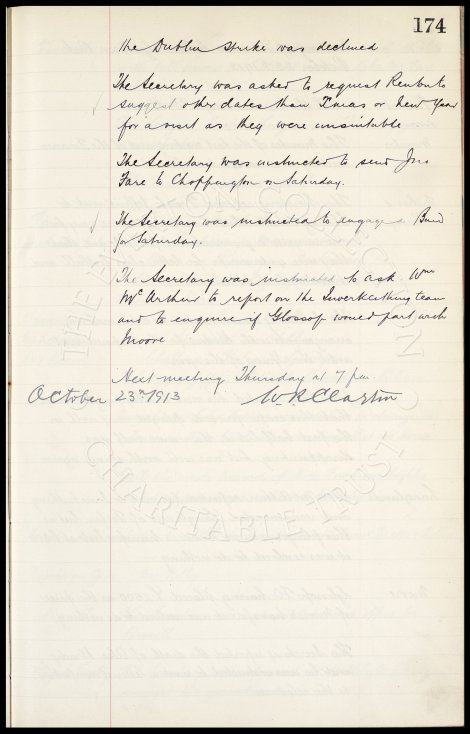 174
the Dublin Strike was declined
The Secretary was asked to request Renton to
suggest other dates than Xmas or New Year
for a visit as they were unsuitable
The Secretary was instructed to send Jno
Fare to Choppington on Saturday.
The Secretary was instructed to engage Band
for Saturday.
The Secretary was instructed to ask Wm
McArthur to report on the Inverkeithing team
and to enquire if Glossop would part with
Moore
Next meeting Thursday at 7 pm.
October 23rd 1913
THE
CHARITABLE TRUST